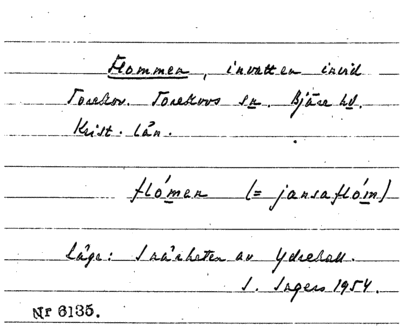 Flommen, invatten invid
Torekov. Torekovs sn. Bjäre hd.
Krist. län.
flómen (= jansaflóm)
Läge: I närheten av Ydrehall.
S. Ingers 1954.
Nr 6135.